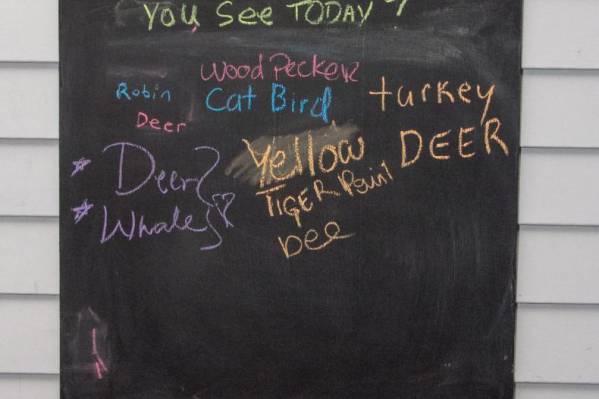 You See TODAY?
Wood Pecker
Robin Cat Bird turkey
Deer
Yellow DEER
Deer
TIGER
Whales
Dee